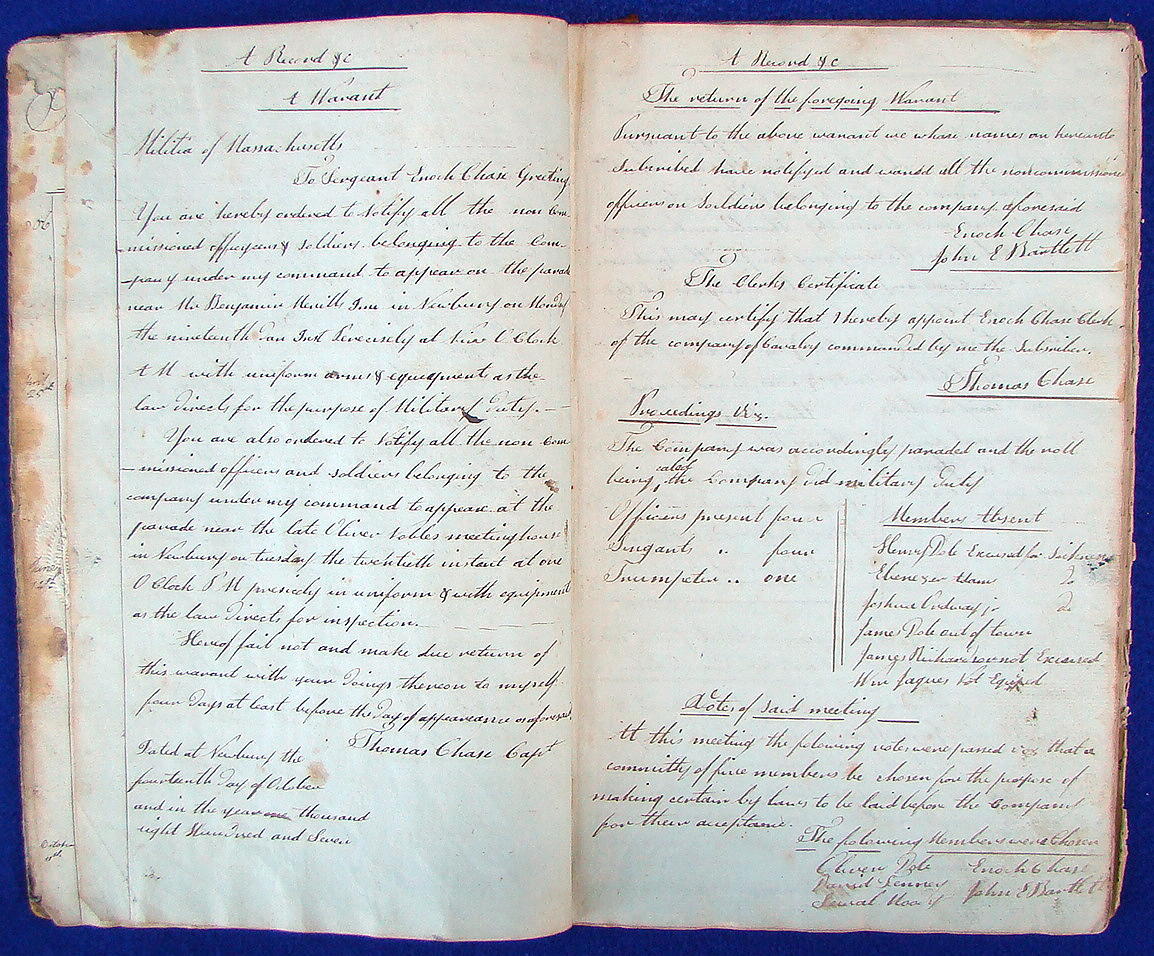 A Record &c
A Warant
Militia of Massachusetts
To Sergeant Enoch Chase Greeting
You are hereby ordered to Notify all the non Com-
-missioned officers & soldiers belonging to the Com-
-pany under my command to appear on the parade
near Mr Benjamin Inn in Newbury on Monday
the nineteenth Inst Precisely at Nine O Clock
A M with uniform arms & equipments as the
law directs for the purpose of Military duty.
You are also ordered to Notify all the non Com
-missioned officers and soldiers belonging to the
company under my command to appear at the
parade near the late Oliver Nobles meeting house
in Newbury on tuesday the twentieth instant at one
O Clock P M presicely in uniform & with equipment
as the law directs for inspection.
Hereof fail not and make due return of
this warant with your doings thereon to myself
four days at least before the day of appearance as aforesaid
Thomas Chase Capt
Dated at Newbury the
fourteenth day of October
and in the year one thousand
eight Hundred and Seven
A Record &c
The return of the foregoing Warant
Pursuant to the above warant we whose names are hereunto
Subsribed have notifyed and warnd all the noncommissioned
officers or soldiers belonging to the company aforesaid
Enoch Chase
John E Bartlett
The Clerks Certificate
This may certify that I hereby appoint Enoch Chase Clerk
of the company of Cavalry commanded by me the Subsriber.
Thomas Chase
Proceedings Viz.
The Company was accordingly paraded and the roll
being caled the Company did military duty
Officers present four
Sergants " four
Trumpeter " one
Members Absent
Henry Pole Excused for Sickness
Ebenezer do
Joshua Ordway jr do
James Pole out of town
James Richardson not Excused
Wm Jaques Not Equipd
Votes of Said meeting
At this meeting the folowing votes were passed viz that a
committy of five members be chosen for the purpose of
making certain by laws to be laid before the Company
for their acceptance.
The folowing Members were Chosen
Oliver Pole Enoch Chase
David Tenney John E Bartlett
Sewal Moody